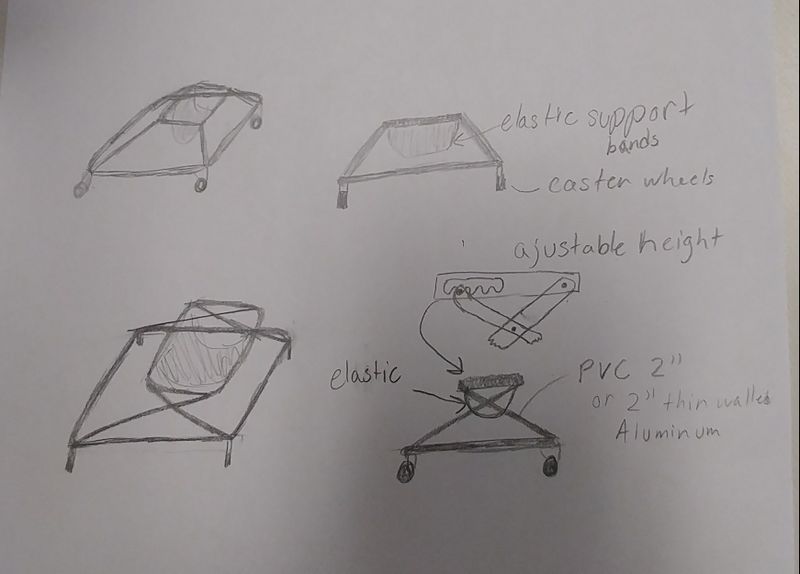 elastic support
bands
caster wheels
ajustable height
elastic
PVC 2"
or 2" thin walled
Aluminum